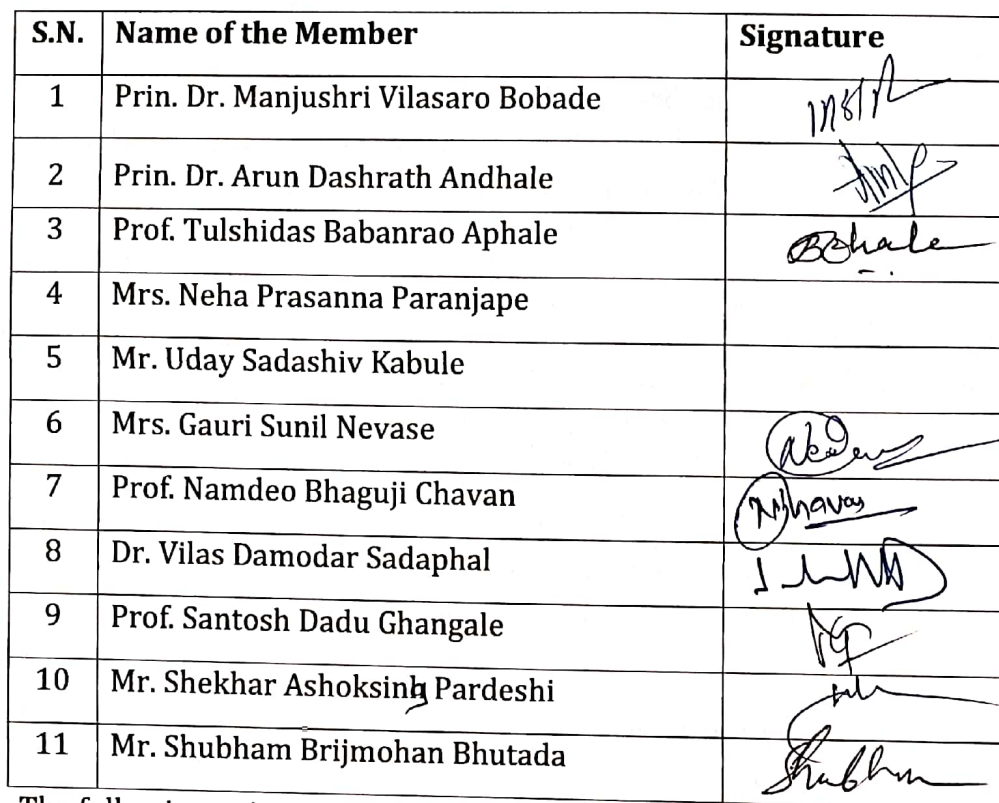 S.N. Name of the Member Signature
1 Prin. Dr. Manjushri Vilasaro Bobade
2 Prin. Dr. Arun Dashrath Andhale
3 Prof. Tulshidas Babanrao Aphale
4 Mrs. Neha Prasanna Paranjape
5 Mr. Uday Sadashiv Kabule
6 Mrs. Gauri Sunil Nevase
7 Prof. Namdeo Bhaguji Chavan
8 Dr. Vilas Damodar Sadaphal
9 Prof. Santosh Dadu Ghangale
10 Mr. Shekhar Ashoksingh Pardeshi
11 Mr. Shubham Brijmohan Bhutada Shubham